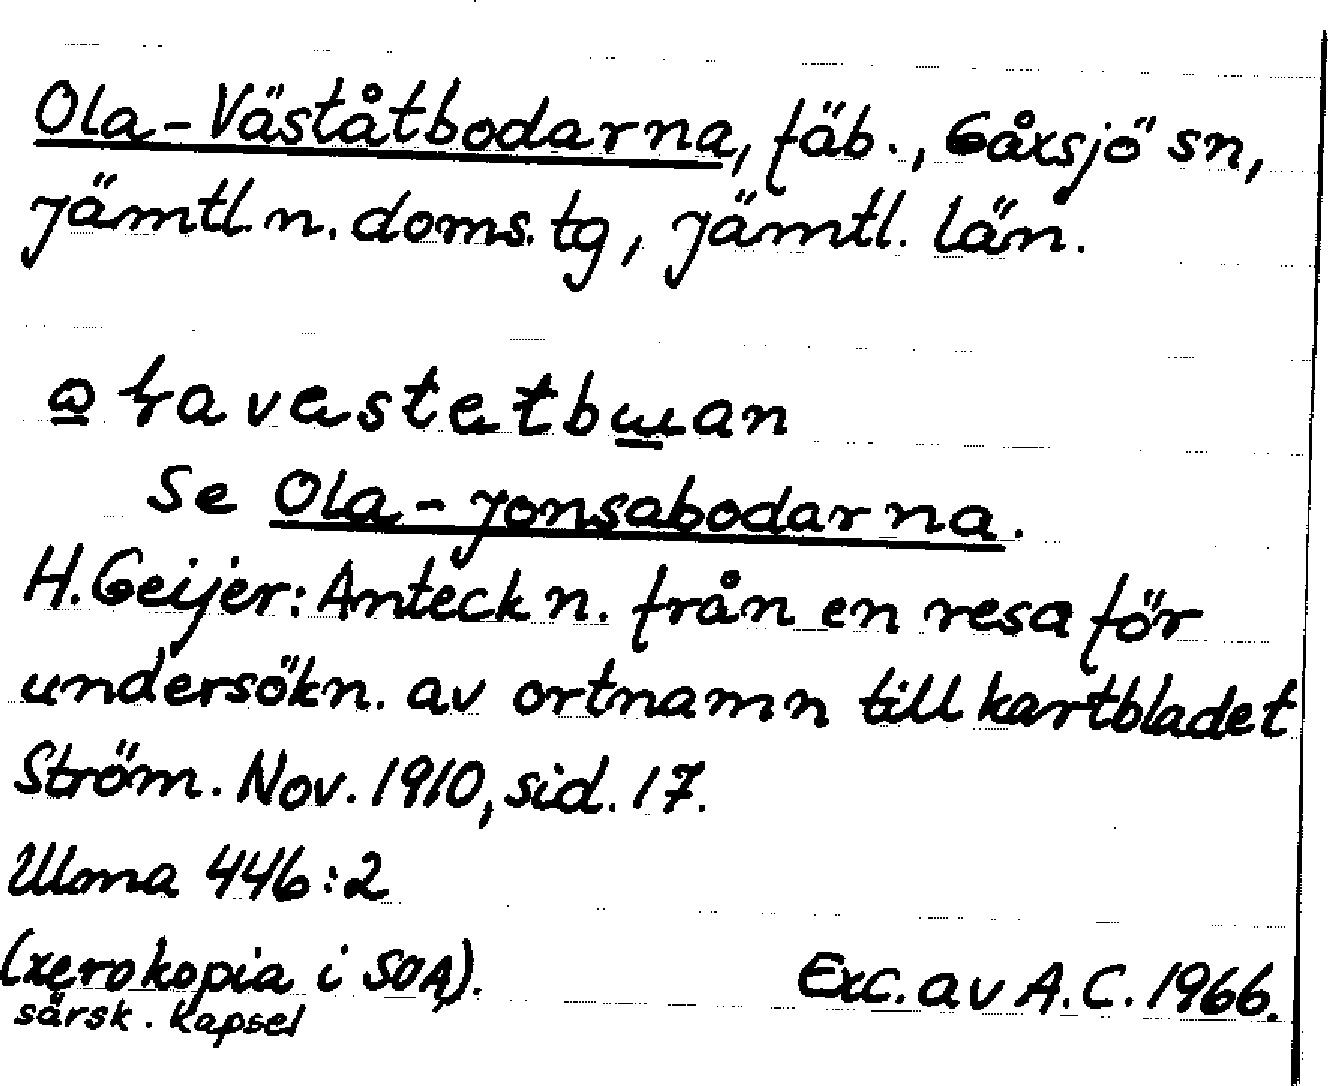 Ola-Väståtbodarna, fäb., Gåxsjö sn,
Jämtl. n. doms. tg, Jämtl. län.
Se Ola-Jonsabodarna.
H. Geijer: Anteckn. från en resa för
undersökn. av ortnamn till kartbladet
Ström. Nov. 1910, sid. 17.
Ulma 446:2
(xerokopia i SOA). Exc. av A.C. 1966.
särsk. kapsel